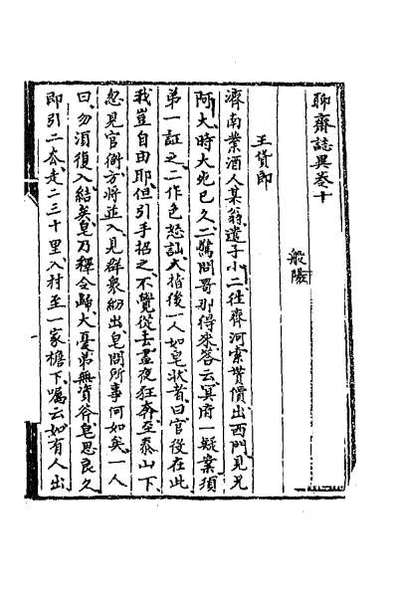 聊齋誌異卷十
般陽
王貨郎
濟南業酒人某翁遣子小二往齊河索貰價出西門見兄
阿大時大死已久二驚問哥那得來答云冥府一疑案須
弟一証之二作色怨訕大指後一人如皂狀者曰官役在此
我豈自由耶但引手招之不覺從去盡夜狂奔至泰山下
忽見官衙方將並入見群衆紛出皂問所事何如矣一人
曰勿須復入結矣皂乃釋令歸大憂弟無資斧皂思良久
即引二去走二三十里入村至一家檐下囑云如有人出